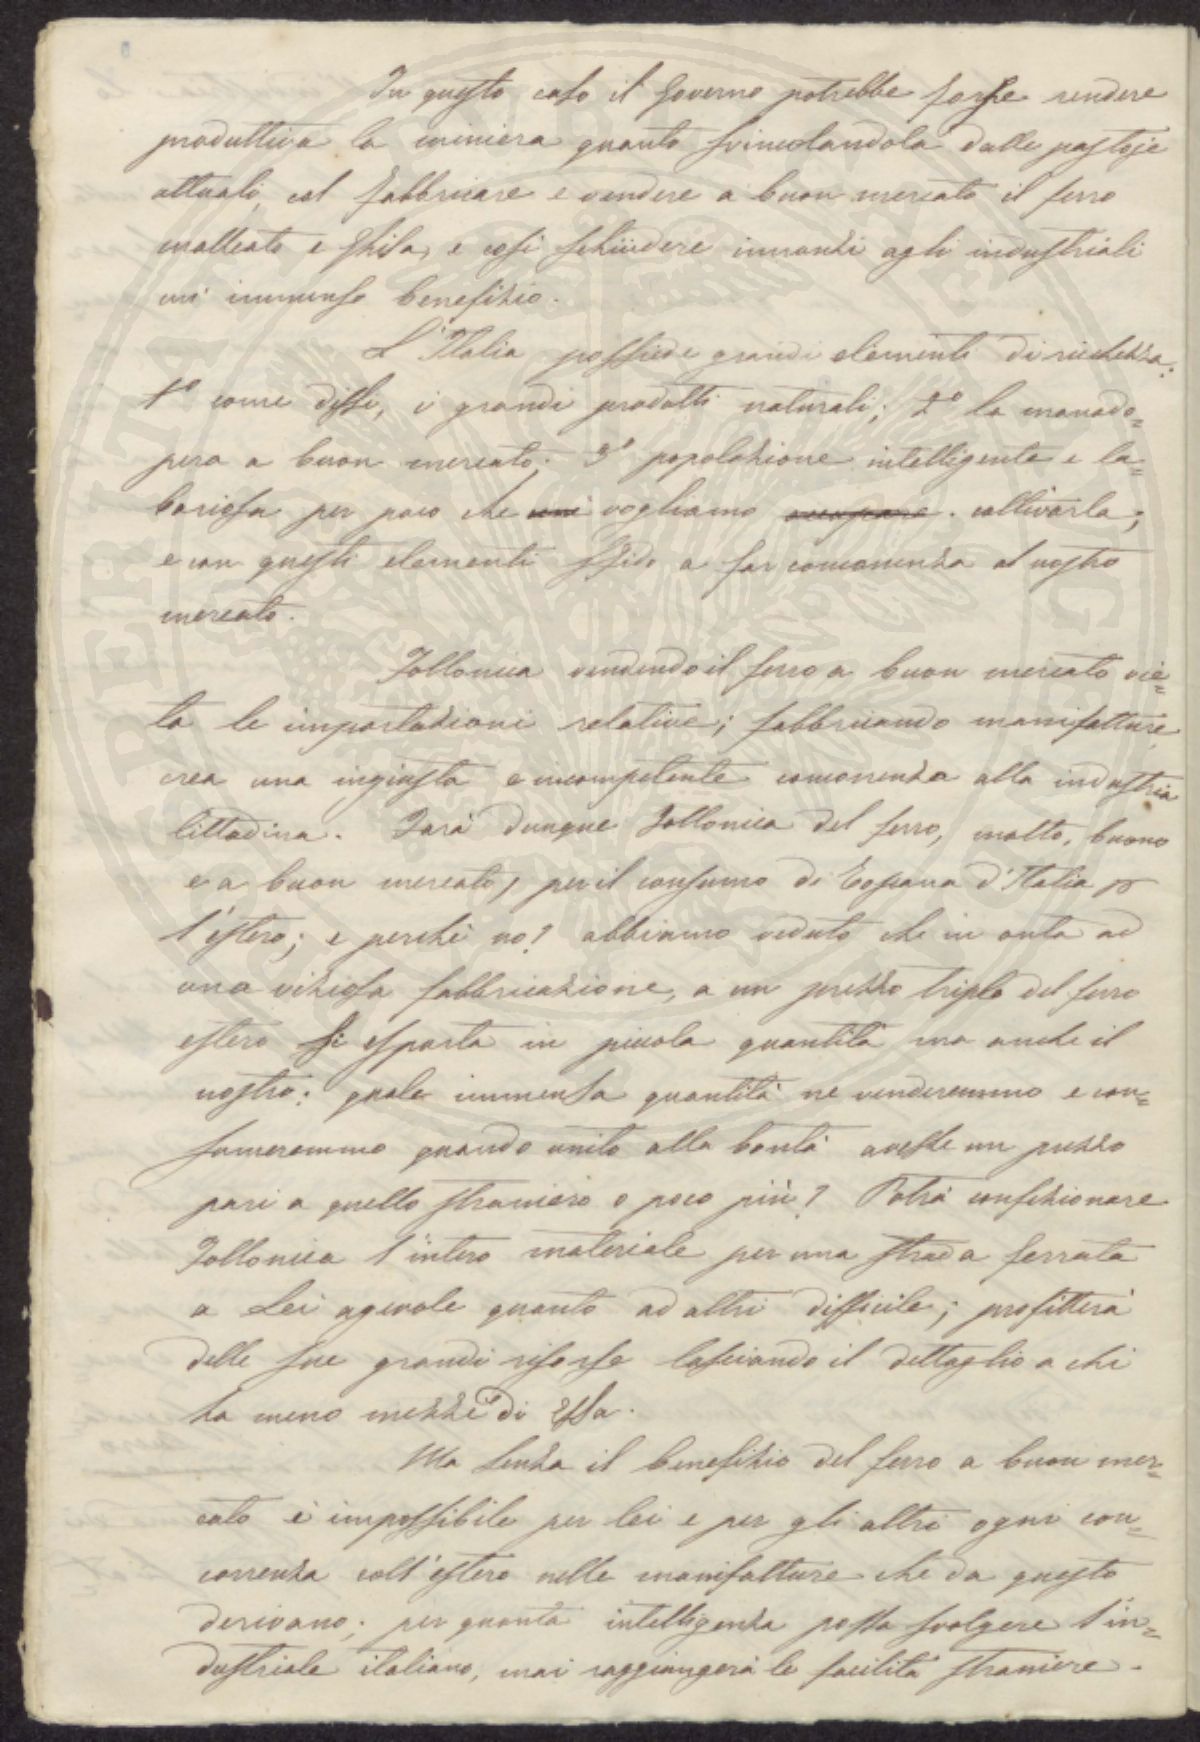 In questo caso il Governo potrebbe forse rendere
produttiva la miniera quanto svincolandola dalle pastoje
attuali, col fabbricare e vendere a buon mercato il ferro
malleato e ghisa, e così schiudere innanzi agli industriali
un' immenso benefizio.
L'Italia possiede grandi elementi di ricchezza:
1º come dissi, i grandi prodotti naturali; 2º la manado=
pera a buon mercato; 3º popolazione intelligente e la=
boriosa per poco che noi vogliamo occupare. coltivarla;
e con questi elementi sfido a far concorrenza al nostro
mercato.
Follonica vendendo il ferro a buon mercato vie=
ta le importazioni relative; fabbricando manifatture
crea una ingiusta e incompetente concorrenza alla industria
cittadina. Farà dunque Follonica del ferro, molto, buono
e a buon mercato, per il consumo di Toscana d'Italia p
l'estero; e perchè no? abbiamo veduto che in onta ad
una viziosa fabbricazione, a un prezzo triplo del ferro
estero si esporta in piccola quantità ma anche il
nostro: quale immensa quantità ne venderemmo e con=
sumeremmo quando unito alla bontà avesse un prezzo
pari a quello straniero o poco più? Potrà confezionare
Follonica l'intero materiale per una strada ferrata
a Lei agevole quanto ad altri difficile; profitterà
delle sue grandi risorse lasciando il dettaglio a chi
ha meno mezzi di Essa.
Ma senza il benefizio del ferro a buon mer=
cato è impossibile per lei e per gli altri ogni con=
correnza coll'estero nelle manifatture che da questo
derivano; per quanta intelligenza possa svolgere l'in=
dustriale italiano, mai raggiungerà le facilità straniere.